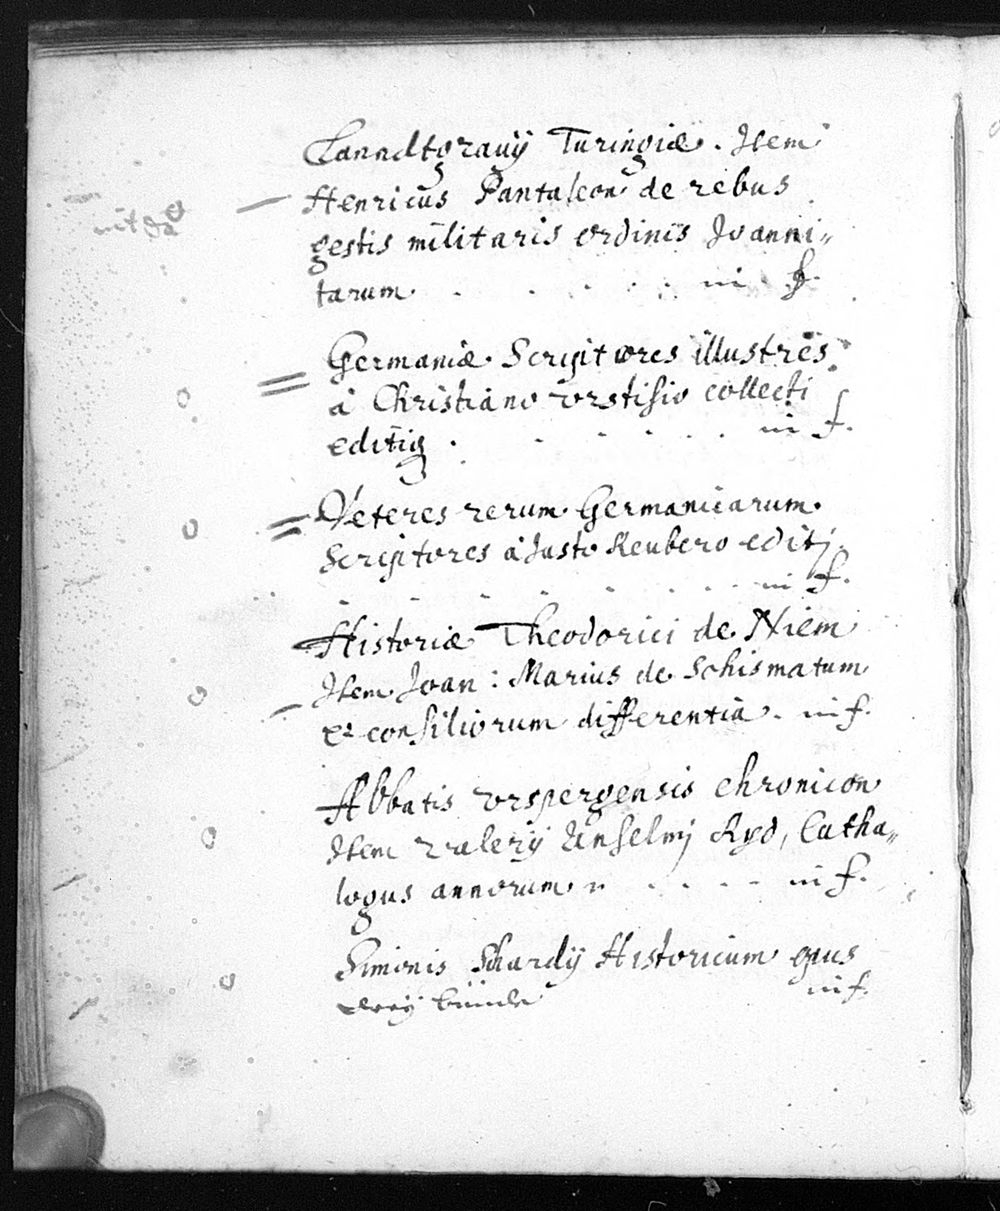 Lanndtgrauij Turingiæ. Item
Henricus Pantaleon de rebus
gestis militaris ordinis Joanni„
tarum . . . . . . in f.
Germaniæ Scriptores illustres
à Christiano vrstisio collecti
editiq . . . . . . in f.
Veteres rerum Germanicarum
Scriptores à Justo Reubero editj.
. . . . . . . in f.
Historiæ Theodorici de Niem
Item Joan: Marius de Schismatum
et consiliorum differentia. in f.
Abbatis vrspergensis chronicon
Item valerij Anselmj Ryd, Catha„
logus annorum . . . . in f.
Simonis Schardij Historicum opus
in f.
drey bünde